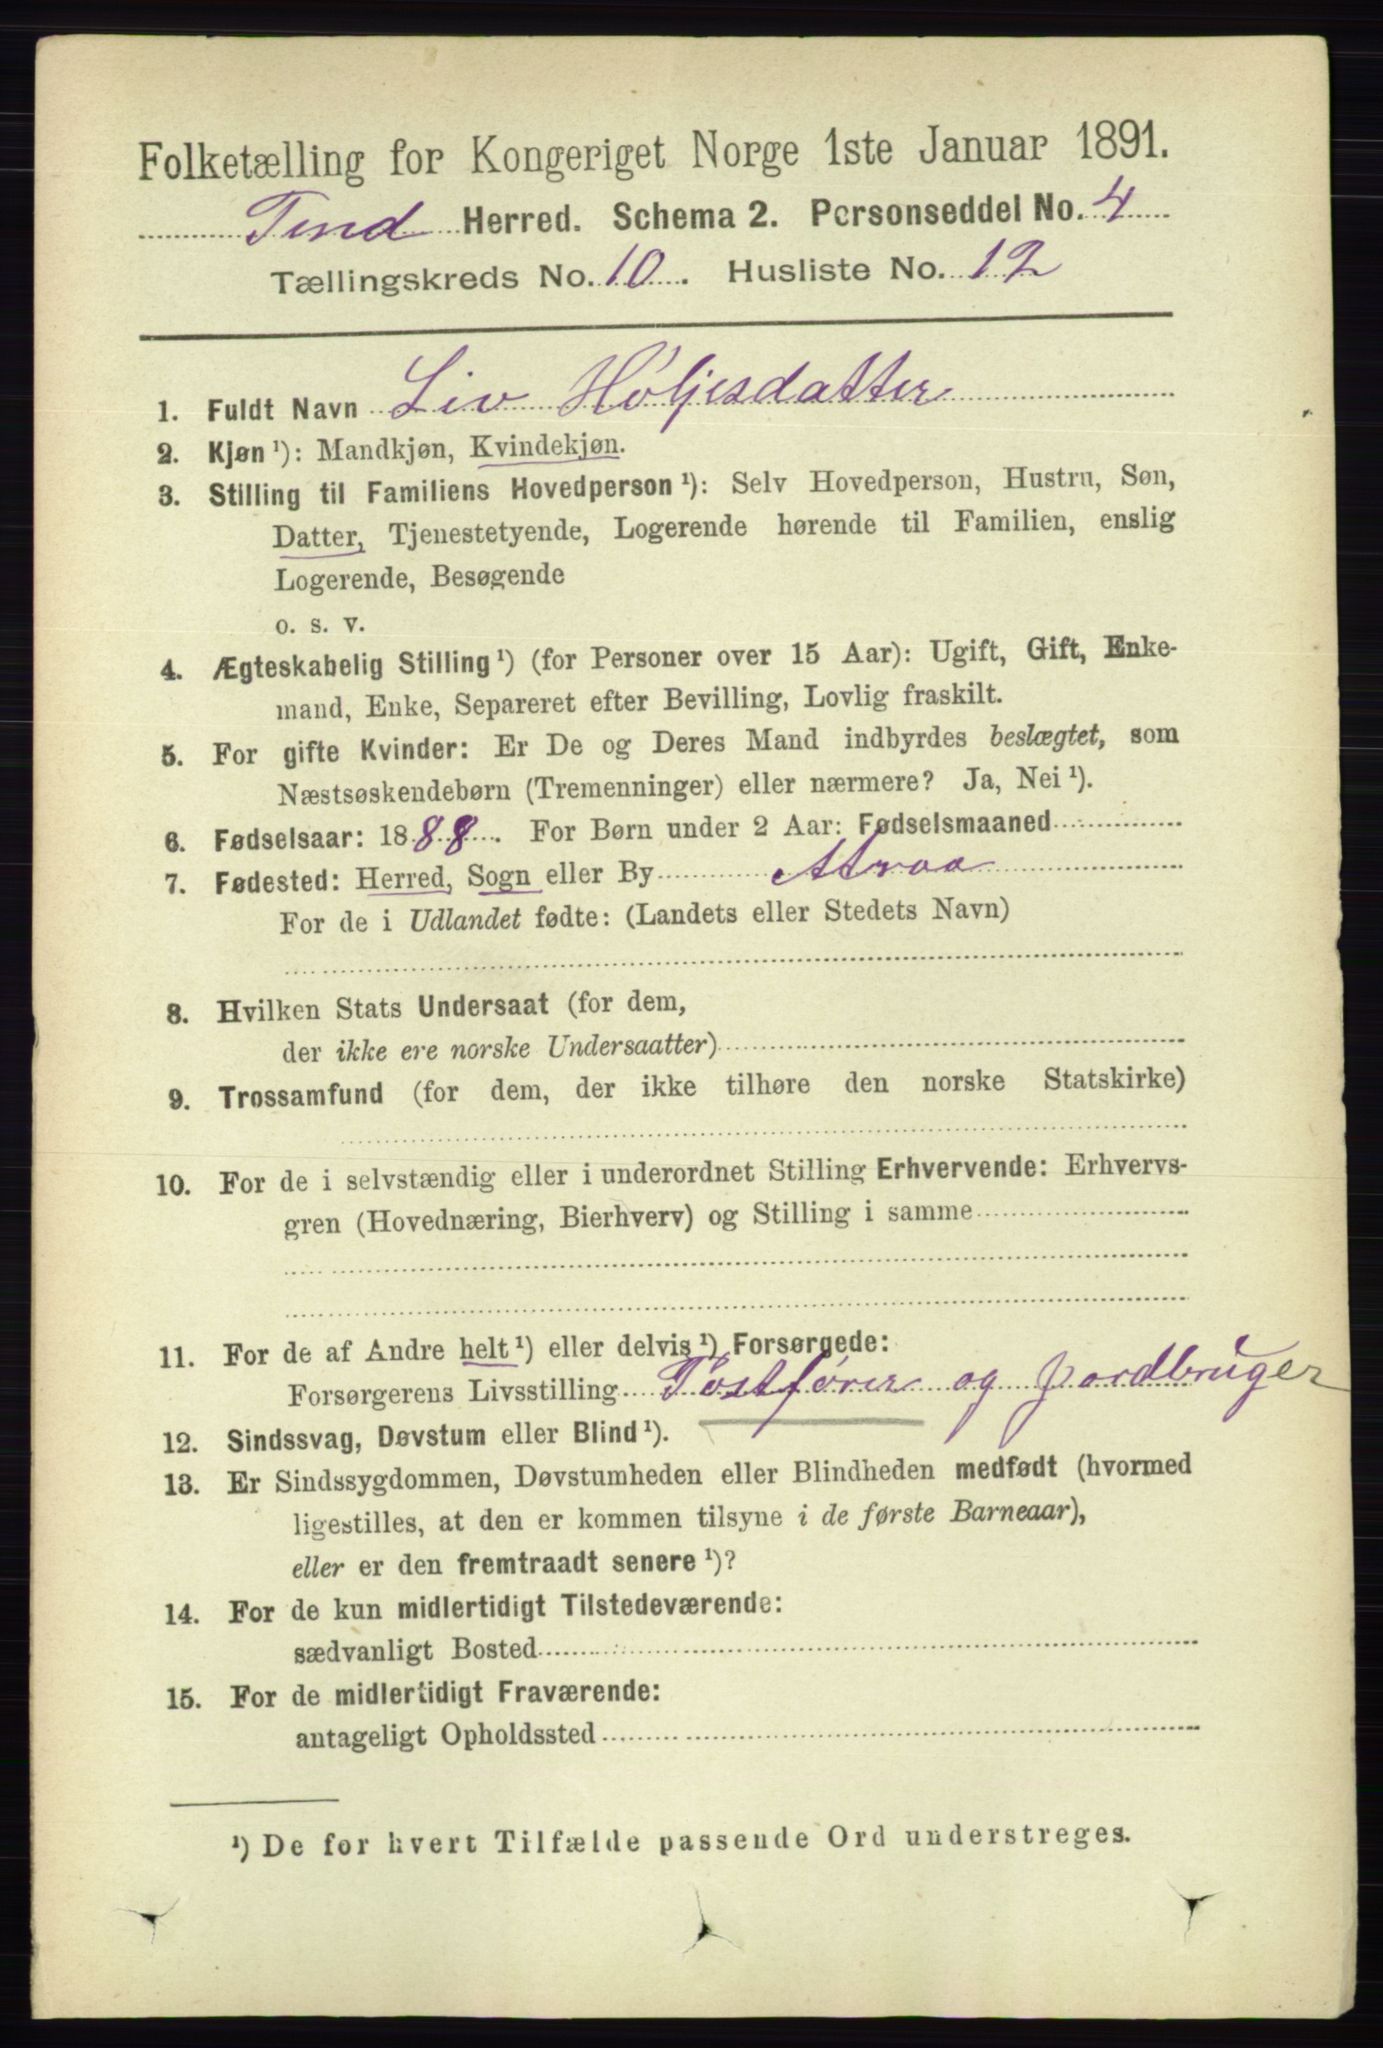 Folketælling for Kongeriget Norge 1ste Januar 1891.
Tind Herred. Schema 2. Personseddel No. 4
Tællingskreds No. 10. Husliste No. 12
1. Fuldt Navn Liv Høljesdatter
2. Kjøn ¹): Mandkjøn, Kvindekjøn.
3. Stilling til Familiens Hovedperson ¹): Selv Hovedperson, Hustru, Søn,
Datter, Tjenestetyende, Logerende hørende til Familien, enslig
Logerende, Besøgende
o. s. v.
4. Ægteskabelig Stilling ¹) (for Personer over 15 Aar): Ugift, Gift, Enke-
mand, Enke, Separeret efter Bevilling, Lovlig fraskilt.
5. For gifte Kvinder: Er De og Deres Mand indbyrdes beslægtet, som
Næstsøskendebørn (Tremenninger) eller nærmere? Ja, Nei ¹).
6. Fødselsaar: 1888. For Børn under 2 Aar: Fødselsmaaned
7. Fødested: Herred, Sogn eller By Atraa
For de i Udlandet fødte: (Landets eller Stedets Navn)
8. Hvilken Stats Undersaat (for dem,
der ikke ere norske Undersaatter)
9. Trossamfund (for dem, der ikke tilhøre den norske Statskirke)
10. For de i selvstændig eller i underordnet Stilling Erhvervende: Erhvervs-
gren (Hovednæring, Bierhverv) og Stilling i samme
11. For de af Andre helt ¹) eller delvis ¹) Forsørgede:
Forsørgerens Livsstilling Postfører og jordbruger
12. Sindssvag, Døvstum eller Blind ¹).
13. Er Sindssygdommen, Døvstumheden eller Blindheden medfødt (hvormed
ligestilles, at den er kommen tilsyne i de første Barneaar),
eller er den fremtraadt senere ¹)?
14. For de kun midlertidigt Tilstedeværende:
sædvanligt Bosted
15. For de midlertidigt Fraværende:
antageligt Opholdssted
¹) De for hvert Tilfælde passende Ord understreges.